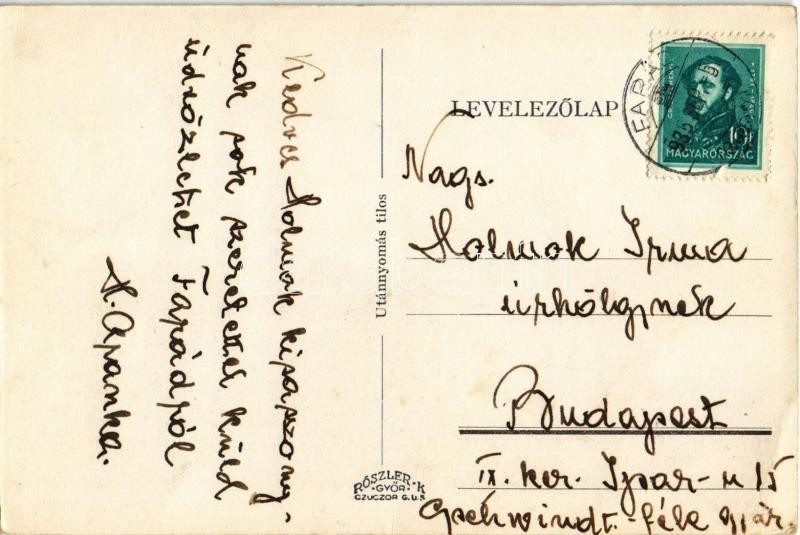 Kedves Holmok kisasszony-
nak sok szeretettel küld
üdvözletet Fapádról
H. Apanka.
Utánnyomás tilos
LEVELEZŐLAP
Nags.
Holmok Irma
úrhölgynek
Budapest
IX. ker. Ipar-u 15
Gschwindt.-féle gyár.
RÓSZLER·K
·GYŐR·
CZUCZOR G.U.5
10f
MAGYARORSZÁG